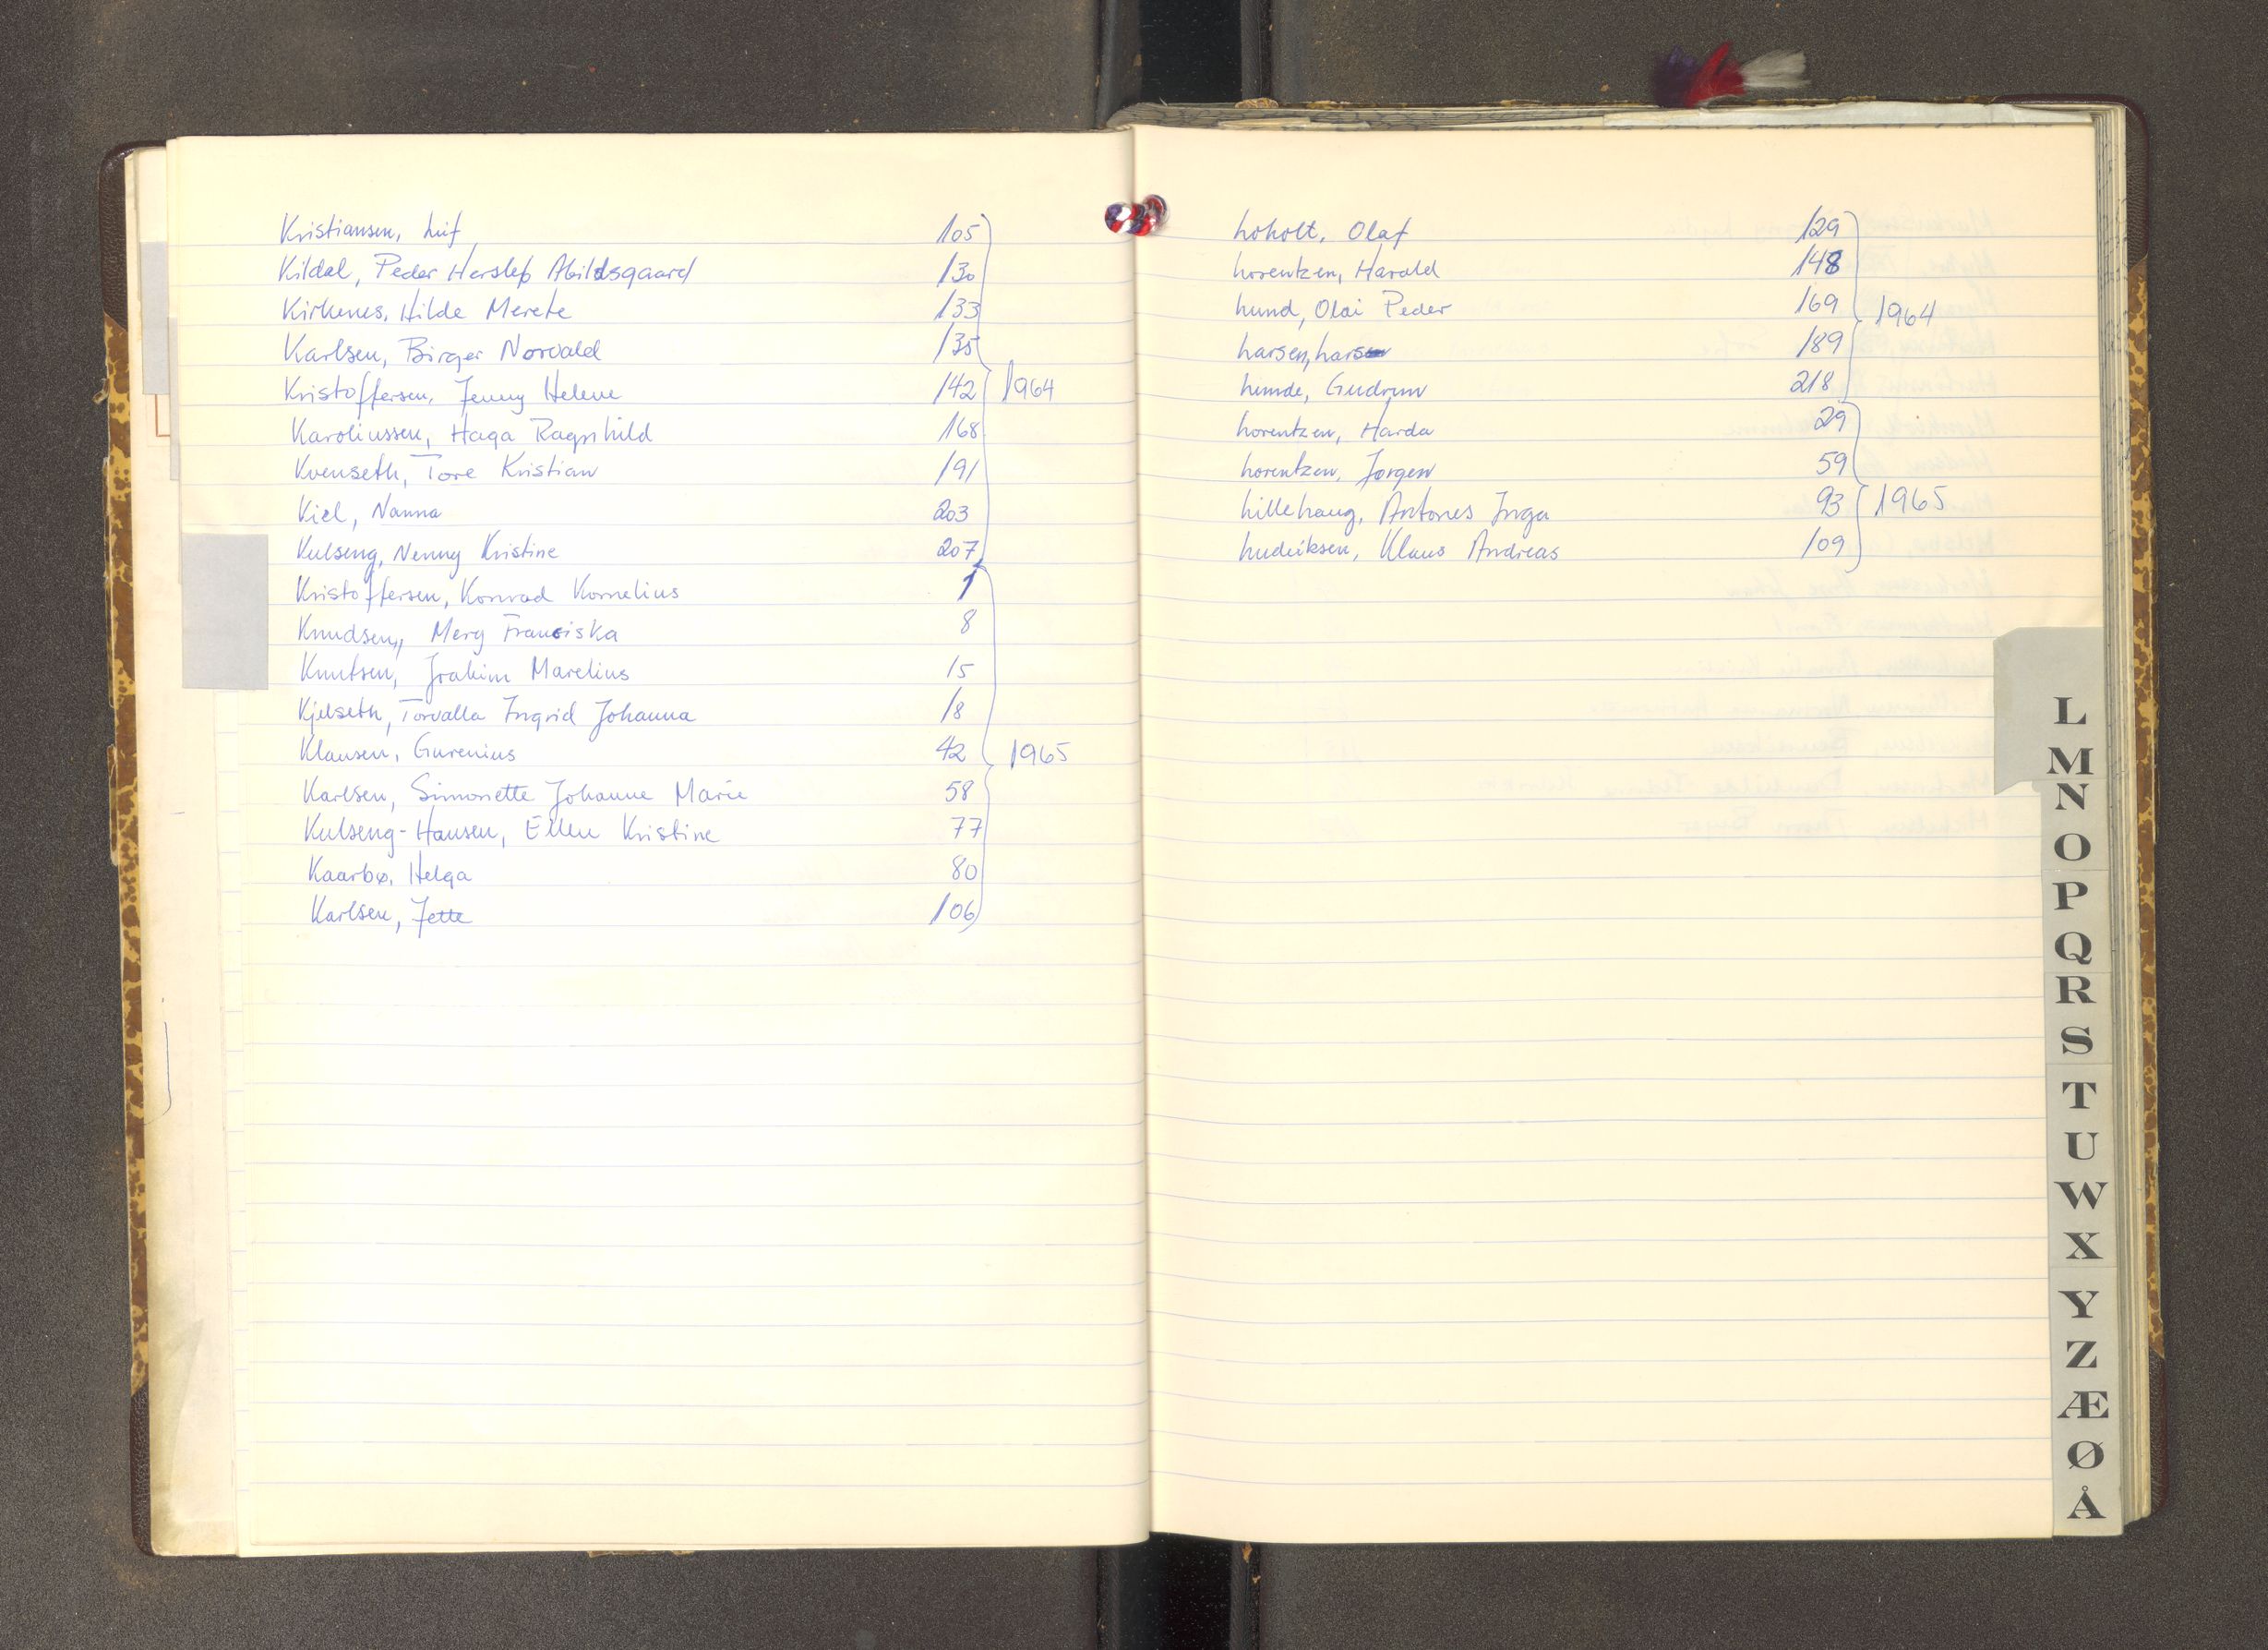 Kristiansen, Leif 105
Kildal, Peder Herslep Abildsgaard 130
Kirkenes, Hilde Merete 133
Karlsen, Birger Norvald 135
Kristoffersen, Jenny Helene 142 1964
Karoliussen, Haga Ragnhild 168
Kvenseth, Tore Kristian 191
Kiel, Nanna 203
Kulseng, Nenny Kristine 207
Kristoffersen, Konrad Kornelius 1
Knudsen, Mery Franciska 8
Knutsen, Joakim Marelius 15
Kjelseth, Torvalla Ingrid Johanna 18
Klausen, Gurenius 42 1965
Karlsen, Simonette Johanne Marie 58
Kulseng-Hansen, Ellen Kristine 77
Kaarbø, Helga 80
Karlsen, Jette 106
Loholt, Olaf 129
Lorentzen, Harald 148
Lund, Olai Peder 169 1964
Larsen, Lars 189
Lunde, Gudrun 218
Lorentzen, Harda 29
Lorentzen, Jørgen 59
Lillehaug, Antones Inga 93 1965
Ludviksen, Klaus Andreas 109
L
M
N
O
P
Q
R
S
T
U
W
X
Y
Z
Æ
Ø
Å